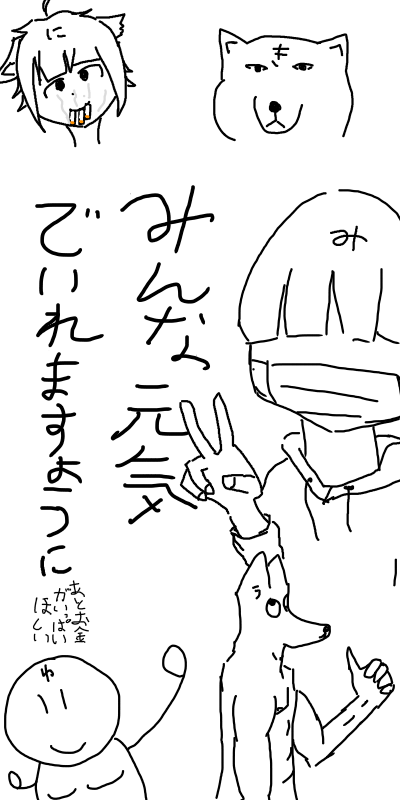 に
き
み
みんな元気
でいれますように
あとお金
がいっぱい
ほしい
う
ね